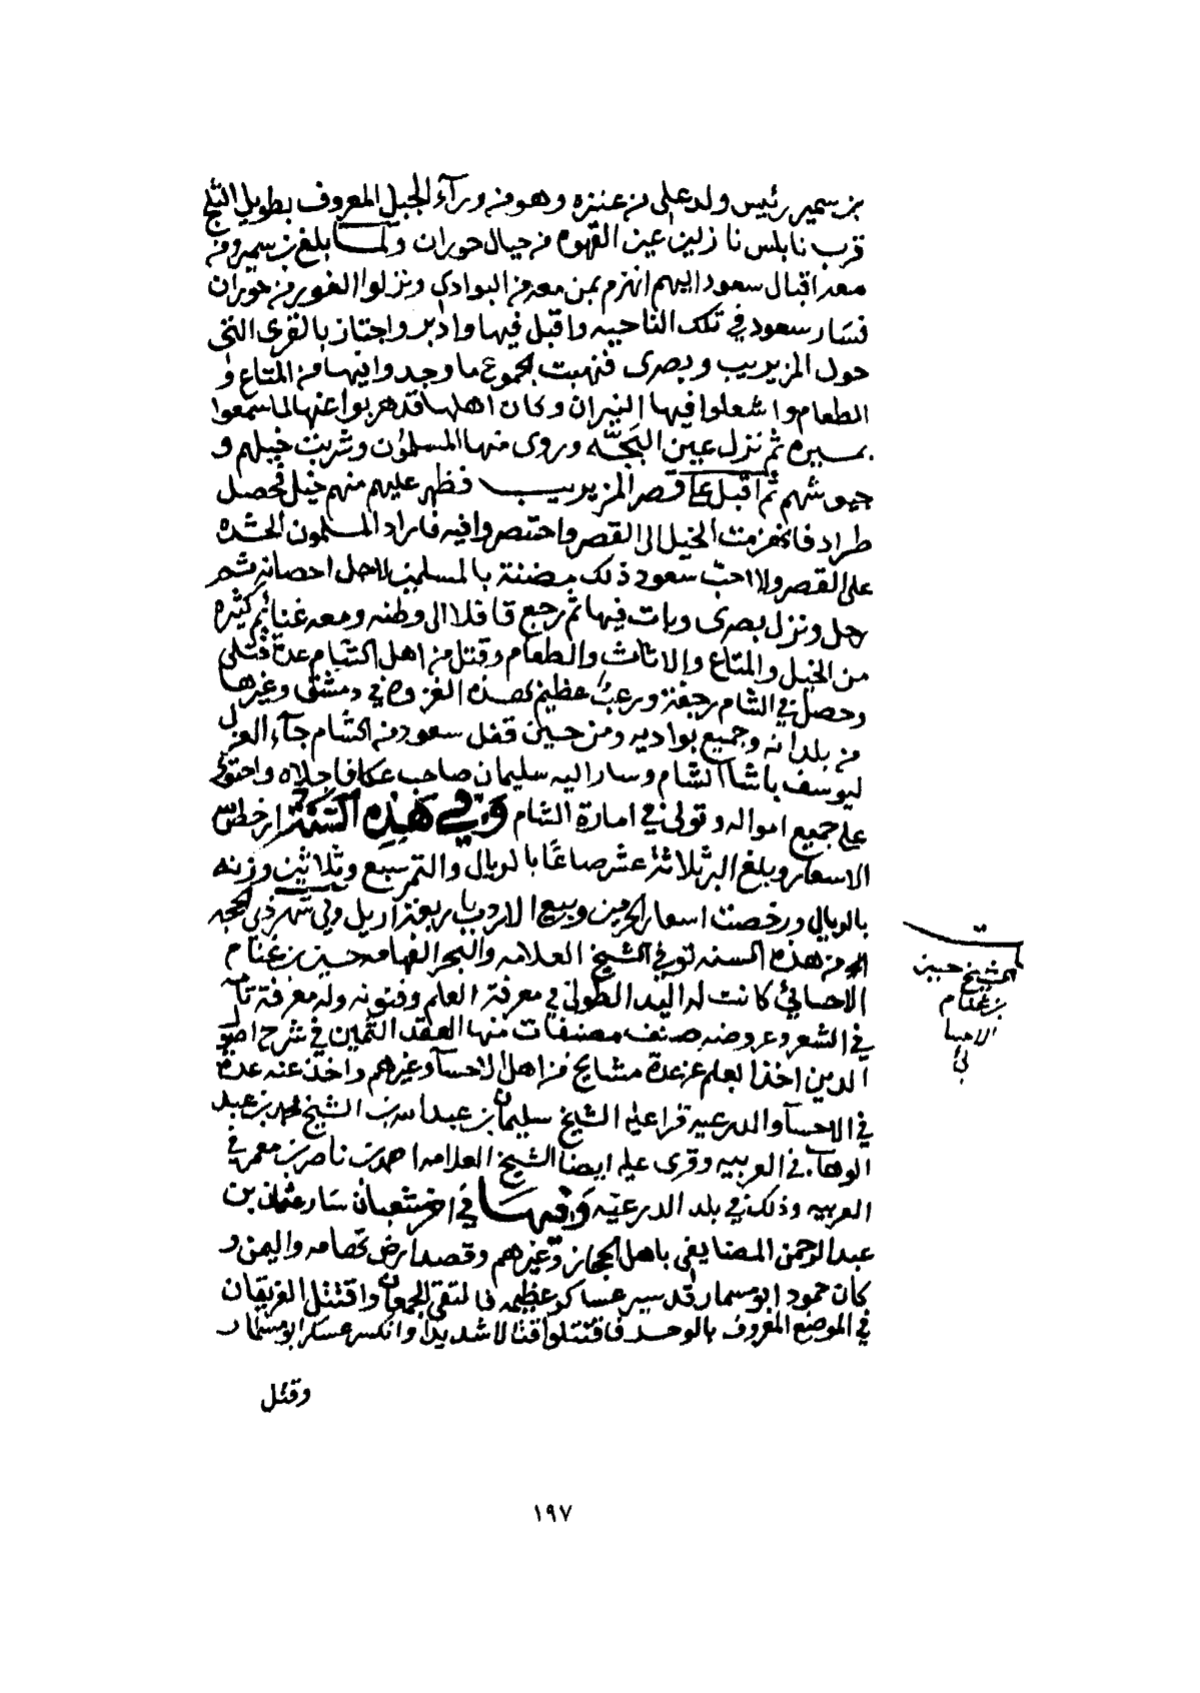 بن سمير رئيس ولد علي من عنزه وهو من ورآء الجبل المعروف بطويل الثلج
قرب نابلس نازلين عين القهوه من جبال حوران ولما بلغ بن سمير ومن
معه اقبال سعود اليهم انهزم بمن معه من البوادي ونزلوا الغوير من حوران
فسار سعود في تلك الناحيه واقبل فيها وادبر واجتاز بالقرى التي
حول المزيريب وبصرى فنهبت الجموع ما وجدوا فيها من المتاع و
الطعام واشعلوا فيها النيران وكان اهلها قد هربوا عنها لما سمعوا
بمسيره ثم نزل عين البَجّه وروى منها المسلمون وشربت خيلهم و
جيوشهم ثم اقبل على قصر المزيريب فظهر عليهم منهم خيل فحصل
طراد فانهزمت الخيل الى القصر واحتصروا فيه فاراد المسلمون الحشده
على القصر ولا احبّ سعود ذلك مضنة بالمسلمين لاجل احصانه ثم
رحل ونزل بصرى وبات فيها ثم رجع قافلا الى وطنه ومعه غنائم كثيره
من الخيل والمتاع والاثاث والطعام وقتل من اهل الشام عدة قتلى
وحصل في الشام رجفة ورعب عظيم بهذه الغزوه في دمشق وغيرها
من بلدانه وجميع بواديه ومن حين قفل سعود من الشام جآء العزل
ليوسف باشا الشام وسار اليه سليمان صاحب عكا فاجلاه واحتوى
على جميع امواله وتولى في امارة الشام وفي هذه السنة ارخص
الاسعار وبلغ البر ثلاثة عشر صاعًا بالريال والتمر سبع وثلاثين وزنه
بالريال ورخصت اسعار الحرمين وبيع الاردب باربعة اريل وفي شهر ذي الحجه
من هذه السنه توفي الشيخ العلامه والبحر الفهامه حسين بن غنام
الاحسائي كانت له اليد الطولى في معرفة العلم وفنونه وله معرفة تآمه
في الشعر وعروضه صنف مصنفات منها العقد الثمين في شرح اصول
الدين اخذ العلم عن عدة مشايخ من اهل الاحسآ وغيرهم واخذ عنه عدة
في الاحسآ والدرعيه قرا عليه الشيخ سليمان بن عبدالله بن الشيخ محمد بن عبد
الوهاب في العربيه وقرى عليه ايضا الشيخ العلامه احمد بن ناصر بن معمر في
العربيه وذلك في بلد الدرعيّه وفيها في اخر شعبان سار عثمان بن
عبدالرحمن المضايفي باهل الحجاز وغيرهم وقصد ارض تهامه واليمن و
كان حمود ابو مسمار قد سير عساكر عظيمه فالتقى الجمعان واقتتل الفريقان
في الموضع المعروف بالوحله فاقتتلوا قتالا شديدا وانكسر عسكر ابو مسمار
وقتل
ت
الشيخ حسين
بن غنام
الاحسا
ئي
١٩٧